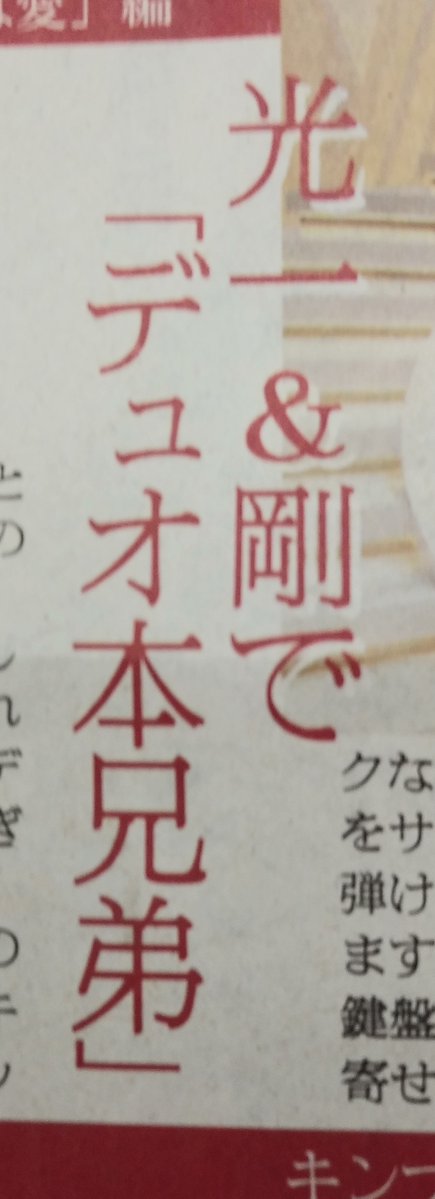 愛」編
光一&剛で
「デュオ本兄弟」
クな
をサ
弾け
ます
鍵盤
寄せ
キン